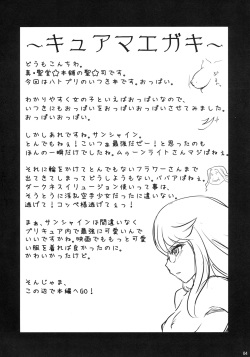 ～キュアマエガキ～
どうもこんちわ。
真・聖堂☆本舗の聖☆司です。
今回はハトプリのいつき本です。おっぱい。
わかりやすく女の子といえばおっぱいなので、
いつきにもおっぱいをおっぱいさせてみました。
おっぱいおっぱい。
しかしあれですね。サンシャイン。
とんでもねぇ！こいつぁ最強だぜー！と思ったのも
ほんの一瞬だけでしたね。ムゥーンライトさんマジぱねぇ。
それに輪をかけてとんでもないフラワーさんまで
出てきてしまってどうしましょうもない。ババアぱねぇ。
ダークネスイリュージョン使いって事は、
そうとうに淫乱空手少女だったに違いない。
逃げて！コッペ様超逃げてぇっ！
まぁ、サンシャインは間違いなく
プリキュア内で最強に可愛いんで
いいですかね。映画でももっと可愛
い服を着れば良かったのに。
かわいかったけど。
そんじゃま、
この辺で本編へGO！